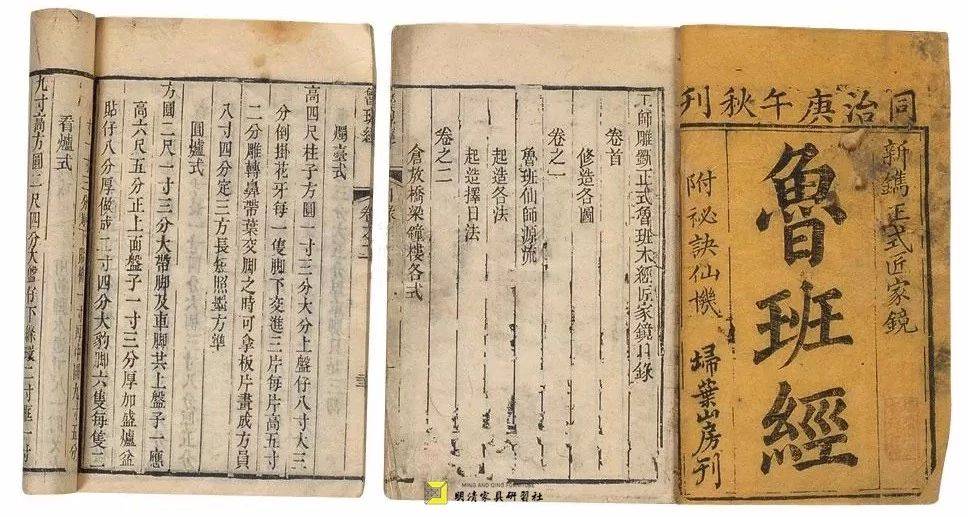 同治庚午秋刊
新鐫正式匠家鏡
魯班經
附祕訣仙機
埽葉山房刊
工師雕斲正式魯班木經匠家鏡目錄
卷首
修造各圖
卷之一
魯班仙師源流
起造各法
起造擇日法
卷之二
倉敖橋梁鐘樓各式
魯班經
卷之二
燭臺式
高四尺柱子方圓一寸三分大分上盤仔八寸大三
分倒掛花牙每一隻脚下交進三片每片高五寸
二分雕轉鼻帶葉交脚之時可拿板片畫成方員
八寸四分定三方長短照墨方準
圓爐式
方圓二尺一寸三分大帶脚及車脚共上盤子一應
高六尺五分正上面盤子一寸三分厚加盛爐盆
貼仔八分厚做成二寸四分大豹脚六隻每隻二
看爐式
九寸高方圓二尺四分大盤仔下絛環二寸框一寸
MING AND QING FURNITURE
明清家具研習社